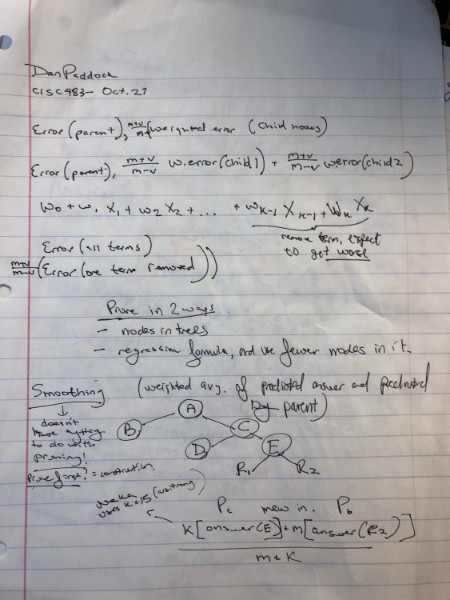 Dan Paddock
CISC483- Oct. 27
Error (parent), m+v/m-v weighted error (child nodes)
Error (parent), m+v/m-v w.error(child1) + m+v/m-v w.error(child2)
W0 + w1 X1 + w2 X2 + ... + wk-1 Xk-1 + Wk Xk
remove term, expect
to get worse
Error (all terms)
m+v/m-v (Error (one term removed))
Prune in 2 ways
- nodes in trees
- regression formula, and use fewer nodes in it.
Smoothing (weighted avg. of predicted answer and predicted
by parent)
doesn't
have anything
to do with
pruning!
Prune first? = construction
A
B C
D E
R1 R2
Weka
uses K=15 (arbitrary)
Pc mew in. Pb
K[answer(E)]+m[answer(R2)]
m+K